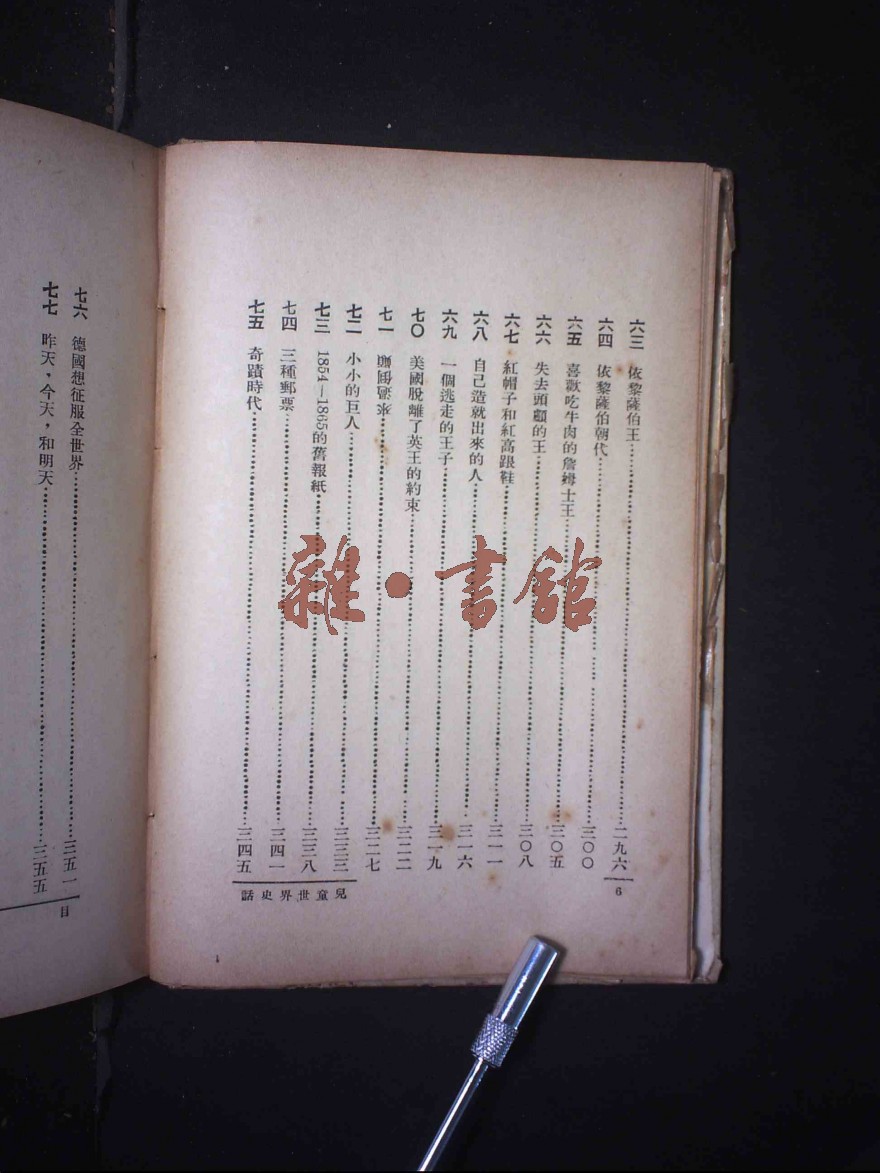 六三 依黎薩伯王……二九六
六四 依黎薩伯朝代……三〇〇
六五 喜歡吃牛肉的詹姆士王……三〇五
六六 失去頭顱的王……三〇八
六七 紅帽子和紅高跟鞋……三一一
六八 自己造就出來的人……三一六
六九 一個逃走的王子……三一九
七〇 美國脫離了英王的約束……三二二
七一 顛倒過來……三二七
七二 小小的巨人……三三三
七三 1854—1865的舊報紙……三三八
七四 三種郵票……三四一
七五 奇蹟時代……三四五
6
兒童世界史話
七六 德國想征服全世界……三五一
七七 昨天，今天，和明天……三五五
目
雜·書館